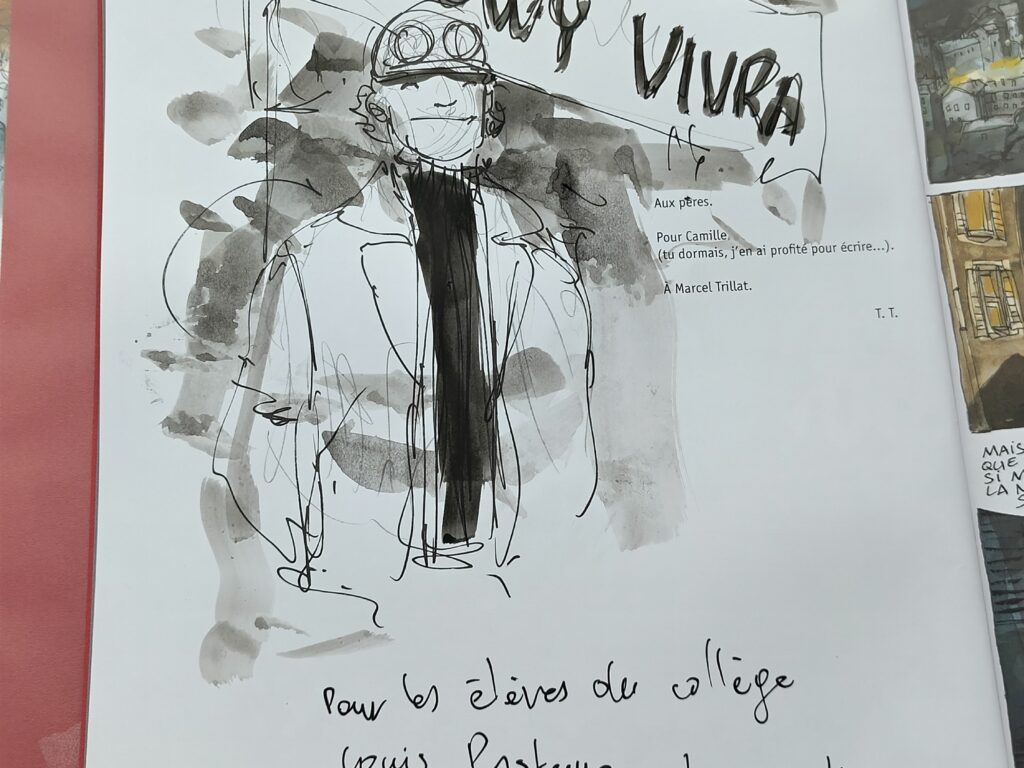 VIVRA
Aux pères.
Pour Camille,
(tu dormais, j'en ai profité pour écrire...).
À Marcel Trillat.
T. T.
Pour les élèves du collège
Louis Pasteur
MAIS
QUE
SI
LA